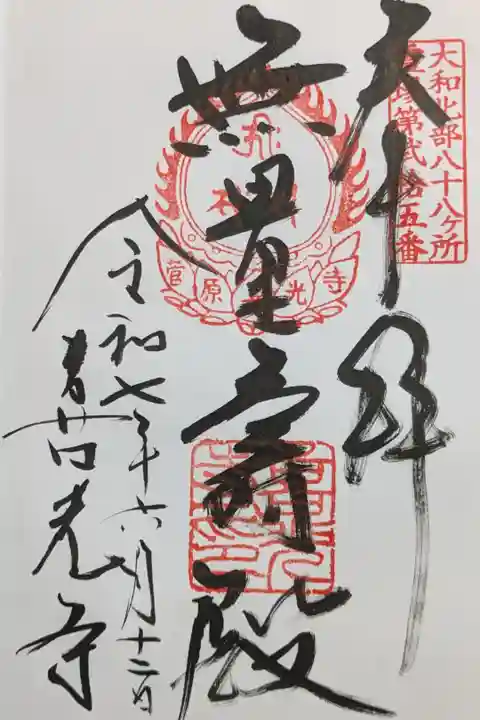 大和北部八十八ヶ所
霊場第弐拾五番
奉拝
無量壽殿
菅原 光寺
令和七年六月十二日
喜光寺